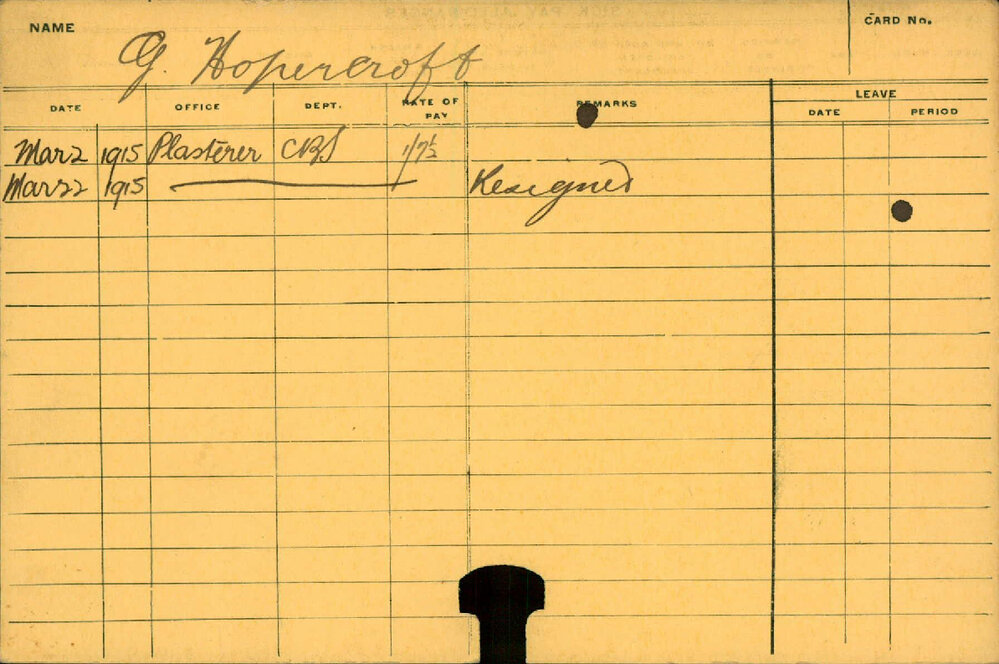 NAME G. Hopercroft CARD No.
DATE OFFICE DEPT. RATE OF PAY REMARKS LEAVE DATE PERIOD
Mar 2 1915 Plasterer CBS 1/7½
Mar 22 1915 Resigned